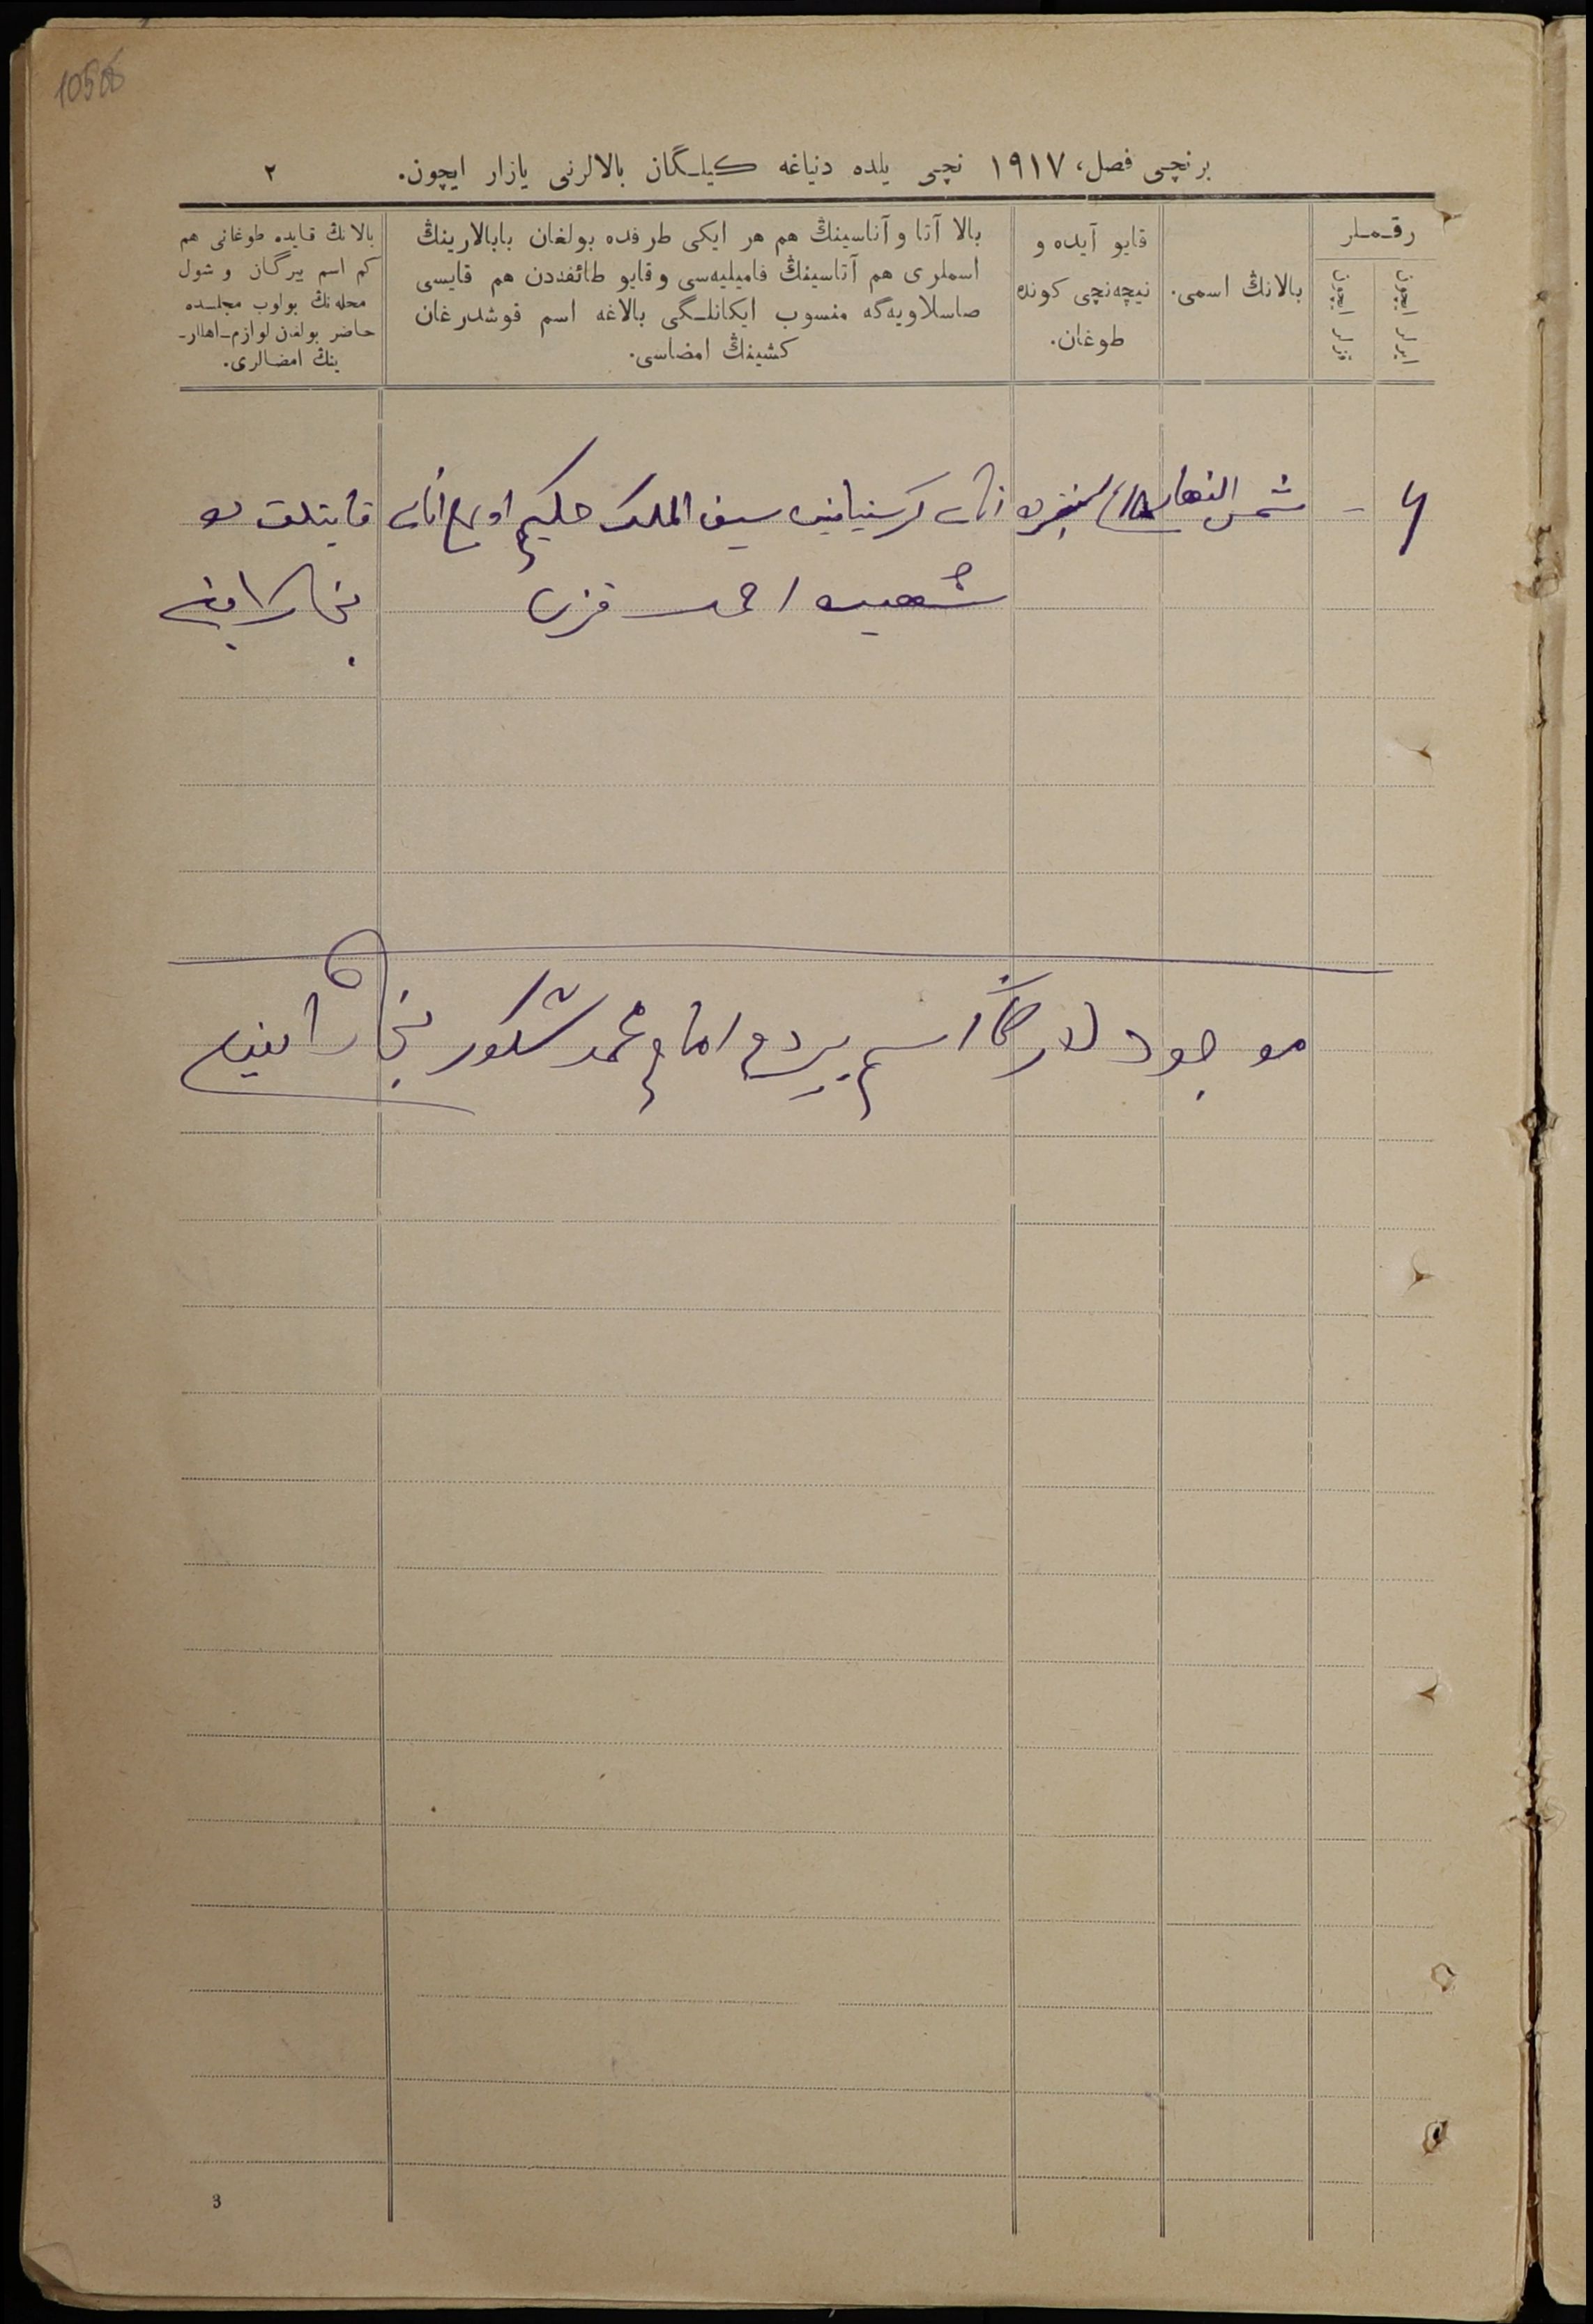 10505
برنچی فصل، ۱۹۱۷ نچی یلده دنیاغه کیلگان بالالرنی یازار ایچون. ۲
رقملر
ایرلر ایچون
قزلر ایچون
بالانڭ اسمی.
قایو آیده و
نیچه‌نچی کونده
طوغان.
بالا آتا و آناسینڭ هم هر ایکی طرفده بولغان بابالارینڭ
اسملری هم آتاسینڭ فامیلیه‌سی و قایو طائفه‌دن هم قایسی
صاسلاویه‌گه منسوب ایکانلگی بالاغه اسم قوشدرغان
کشینڭ امضاسی.
بالانڭ قایده طوغانی هم
کم اسم بیرگان و شول
محله‌نڭ بولوب مجلسده
حاضر بولغان لوازم اهللر-
ینڭ امضالری.
شمس النهار اتاسی کرستیانین سیف الملک حکیم اوغلی اناسی
احمد قزی
موجود لارغا اسم بیردم امام محمد شکور
3